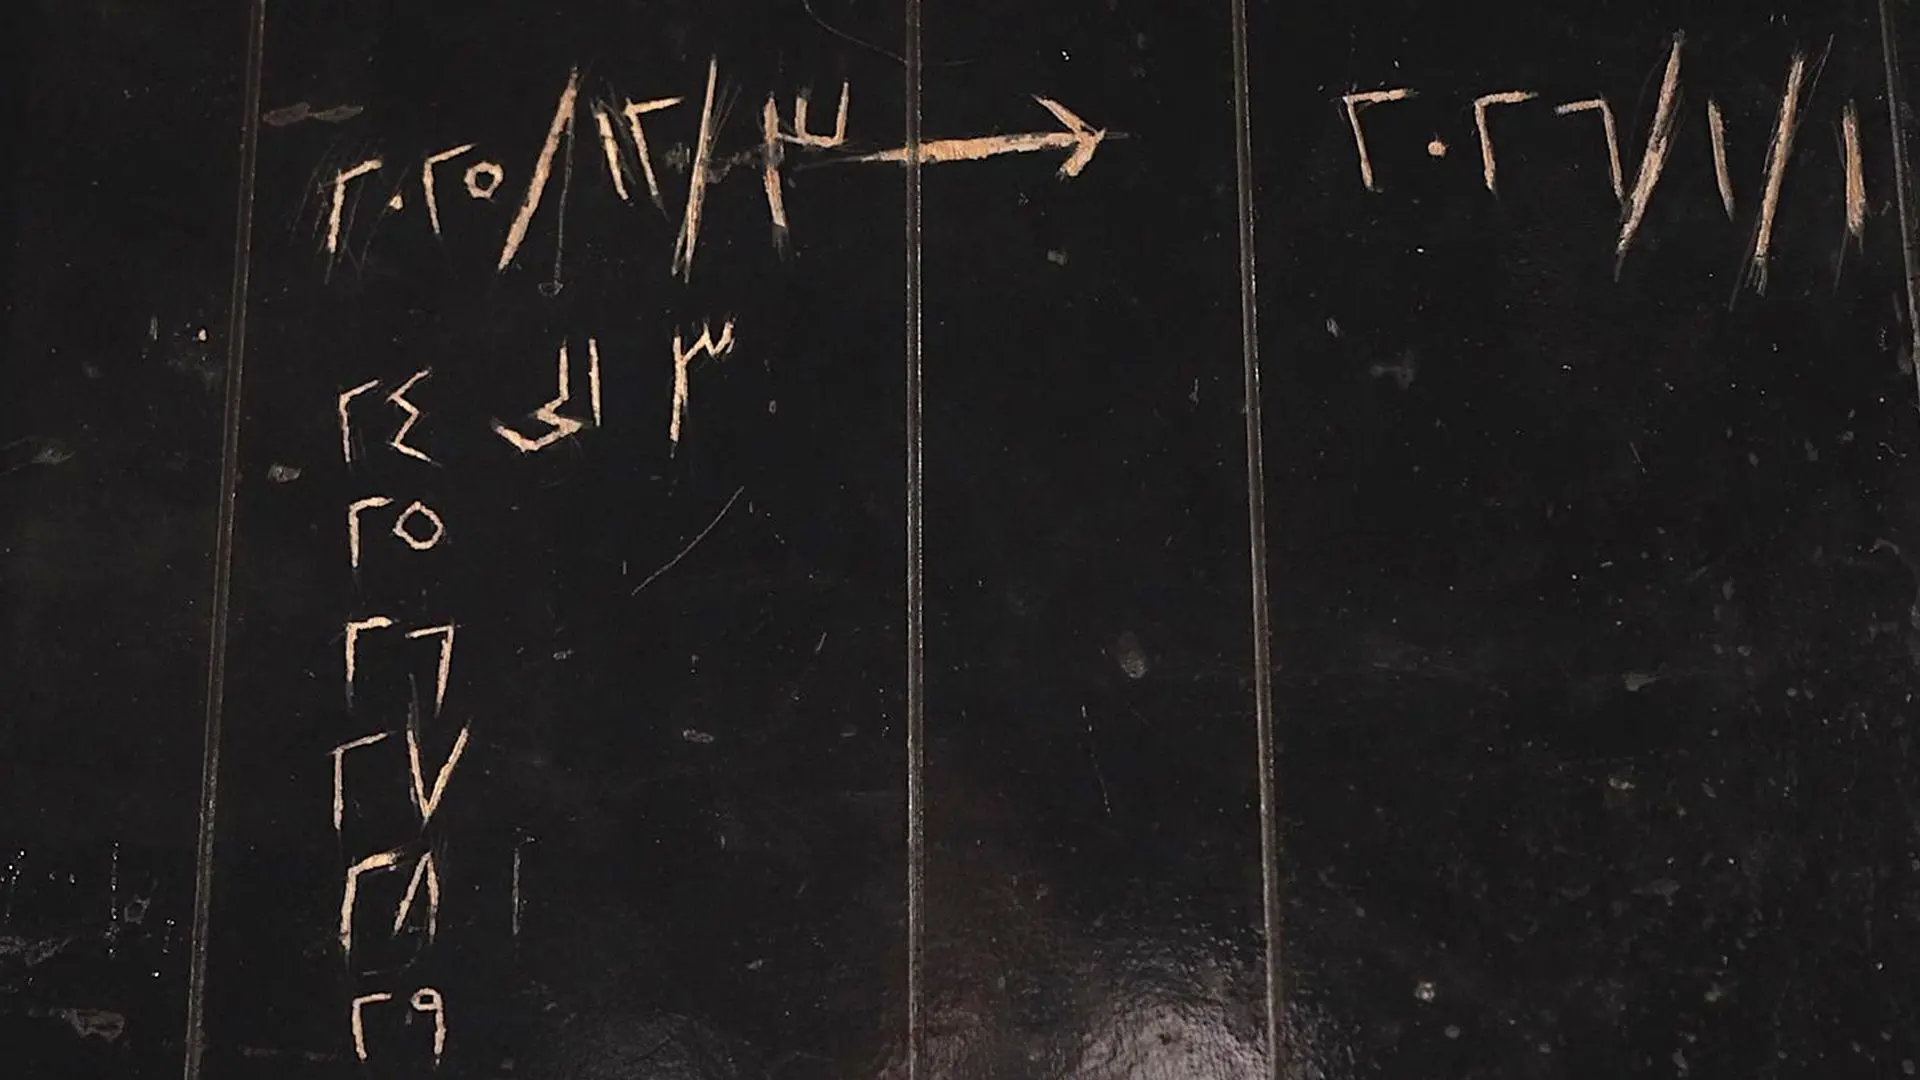 ٢٠٢٥/١٢/٣ → ٢٠٢٦/١/١
٣ الى ٢٤
٢٥
٢٦
٢٧
٢٨
٢٩